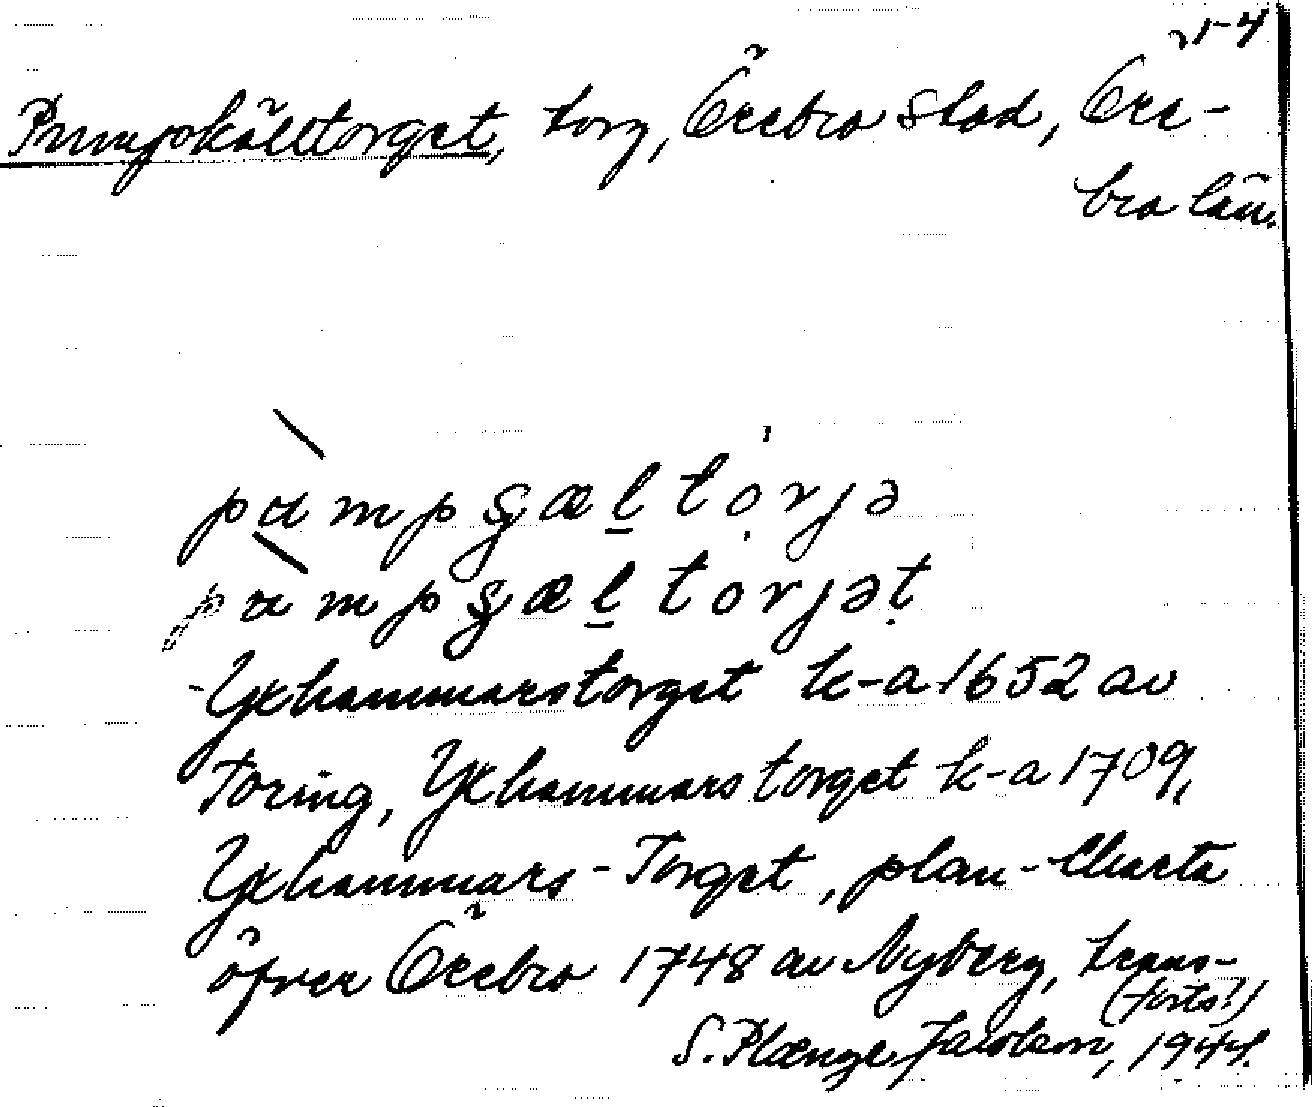 Pumpkälltorget, torg, Örebro stad, Öre-
bro län.
pumpʂæltorjə
pumpʂæltorjət
Yxhammarstorget k-a 1652 av
Toring, Yxhammarstorget k-a 1709,
Yxhammars-Torget, plan-Charta
öfver Örebro 1748 av Nyberg, trans-
(forts!)
S. Plænge Jacobson, 1944.